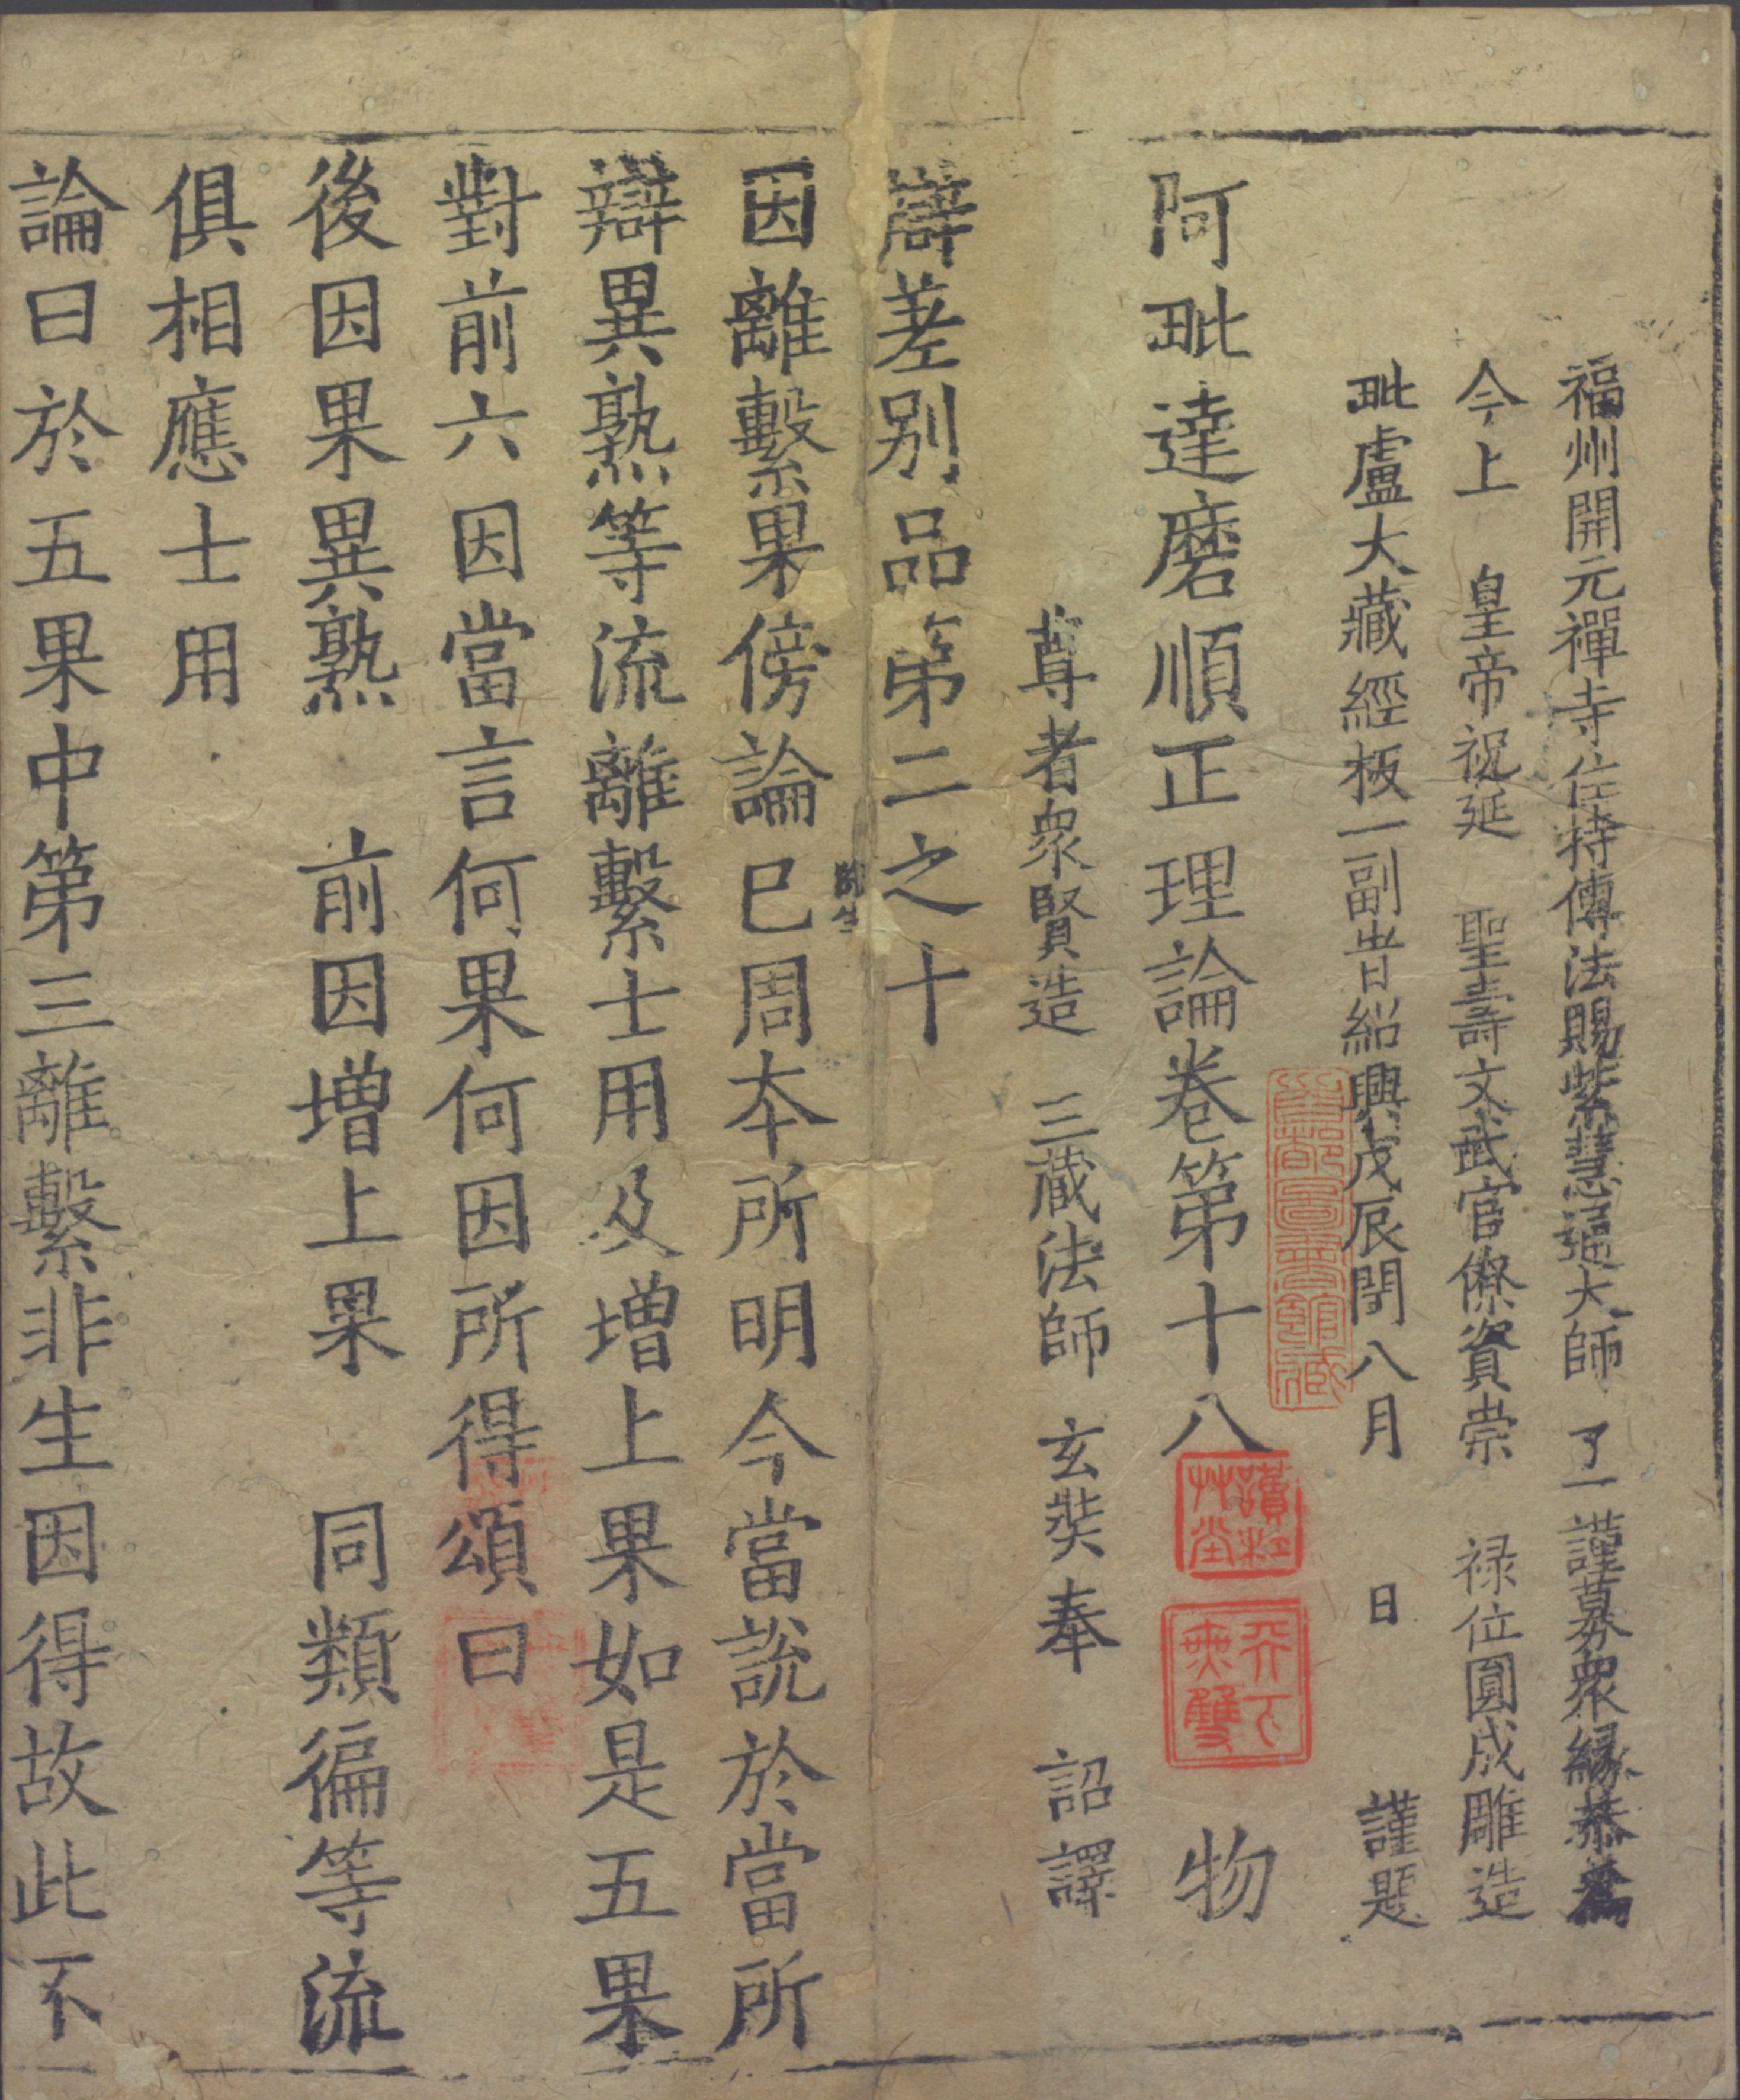 福州開元禪寺住持傳法賜紫慧通大師　了一謹募衆縁恭爲
今上　皇帝祝延　聖壽文武官僚資崇　禄位圓成雕造
毗盧大藏經板一副旹紹興戊辰閏八月　　日　　謹題
阿毗達磨順正理論卷第十八　　物
尊者衆賢造　三藏法師　玄奘奉　詔譯
辯差別品第二之十
因離繫果傍論已周本所明今當説於當所
辯異熟等流離繫士用及增上果如是五果
對前六因當言何果何因所得頌曰
後因果異熟　前因增上果　同類徧等流
俱相應士用
論曰於五果中第三離繫非生因得故此不
首都圖書館藏
讀杜艸堂
天下無雙